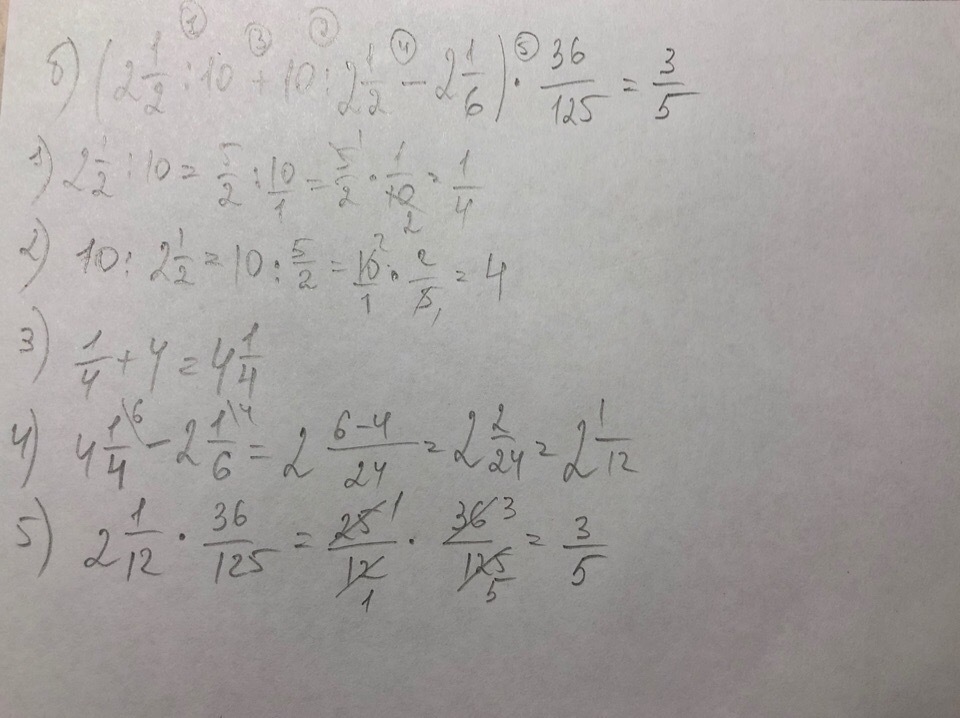 ① ③ ② ④ ⑤
б) (2 1/2 : 10 + 10 : 2 1/2 − 2 1/6) · 36/125 = 3/5
1) 2 1/2 : 10 = 5/2 : 10/1 = 5/2 1 · 1/10 2 = 1/4
2) 10 : 2 1/2 = 10 : 5/2 = 10/1 2 · 2/5 1 = 4
3) 1/4 + 4 = 4 1/4
4) 4 1/4 \6 − 2 1/6 \4 = 2 6−4/24 = 2 2/24 = 2 1/12
5) 2 1/12 · 36/125 = 25/12 1 1 · 36/125 3 5 = 3/5